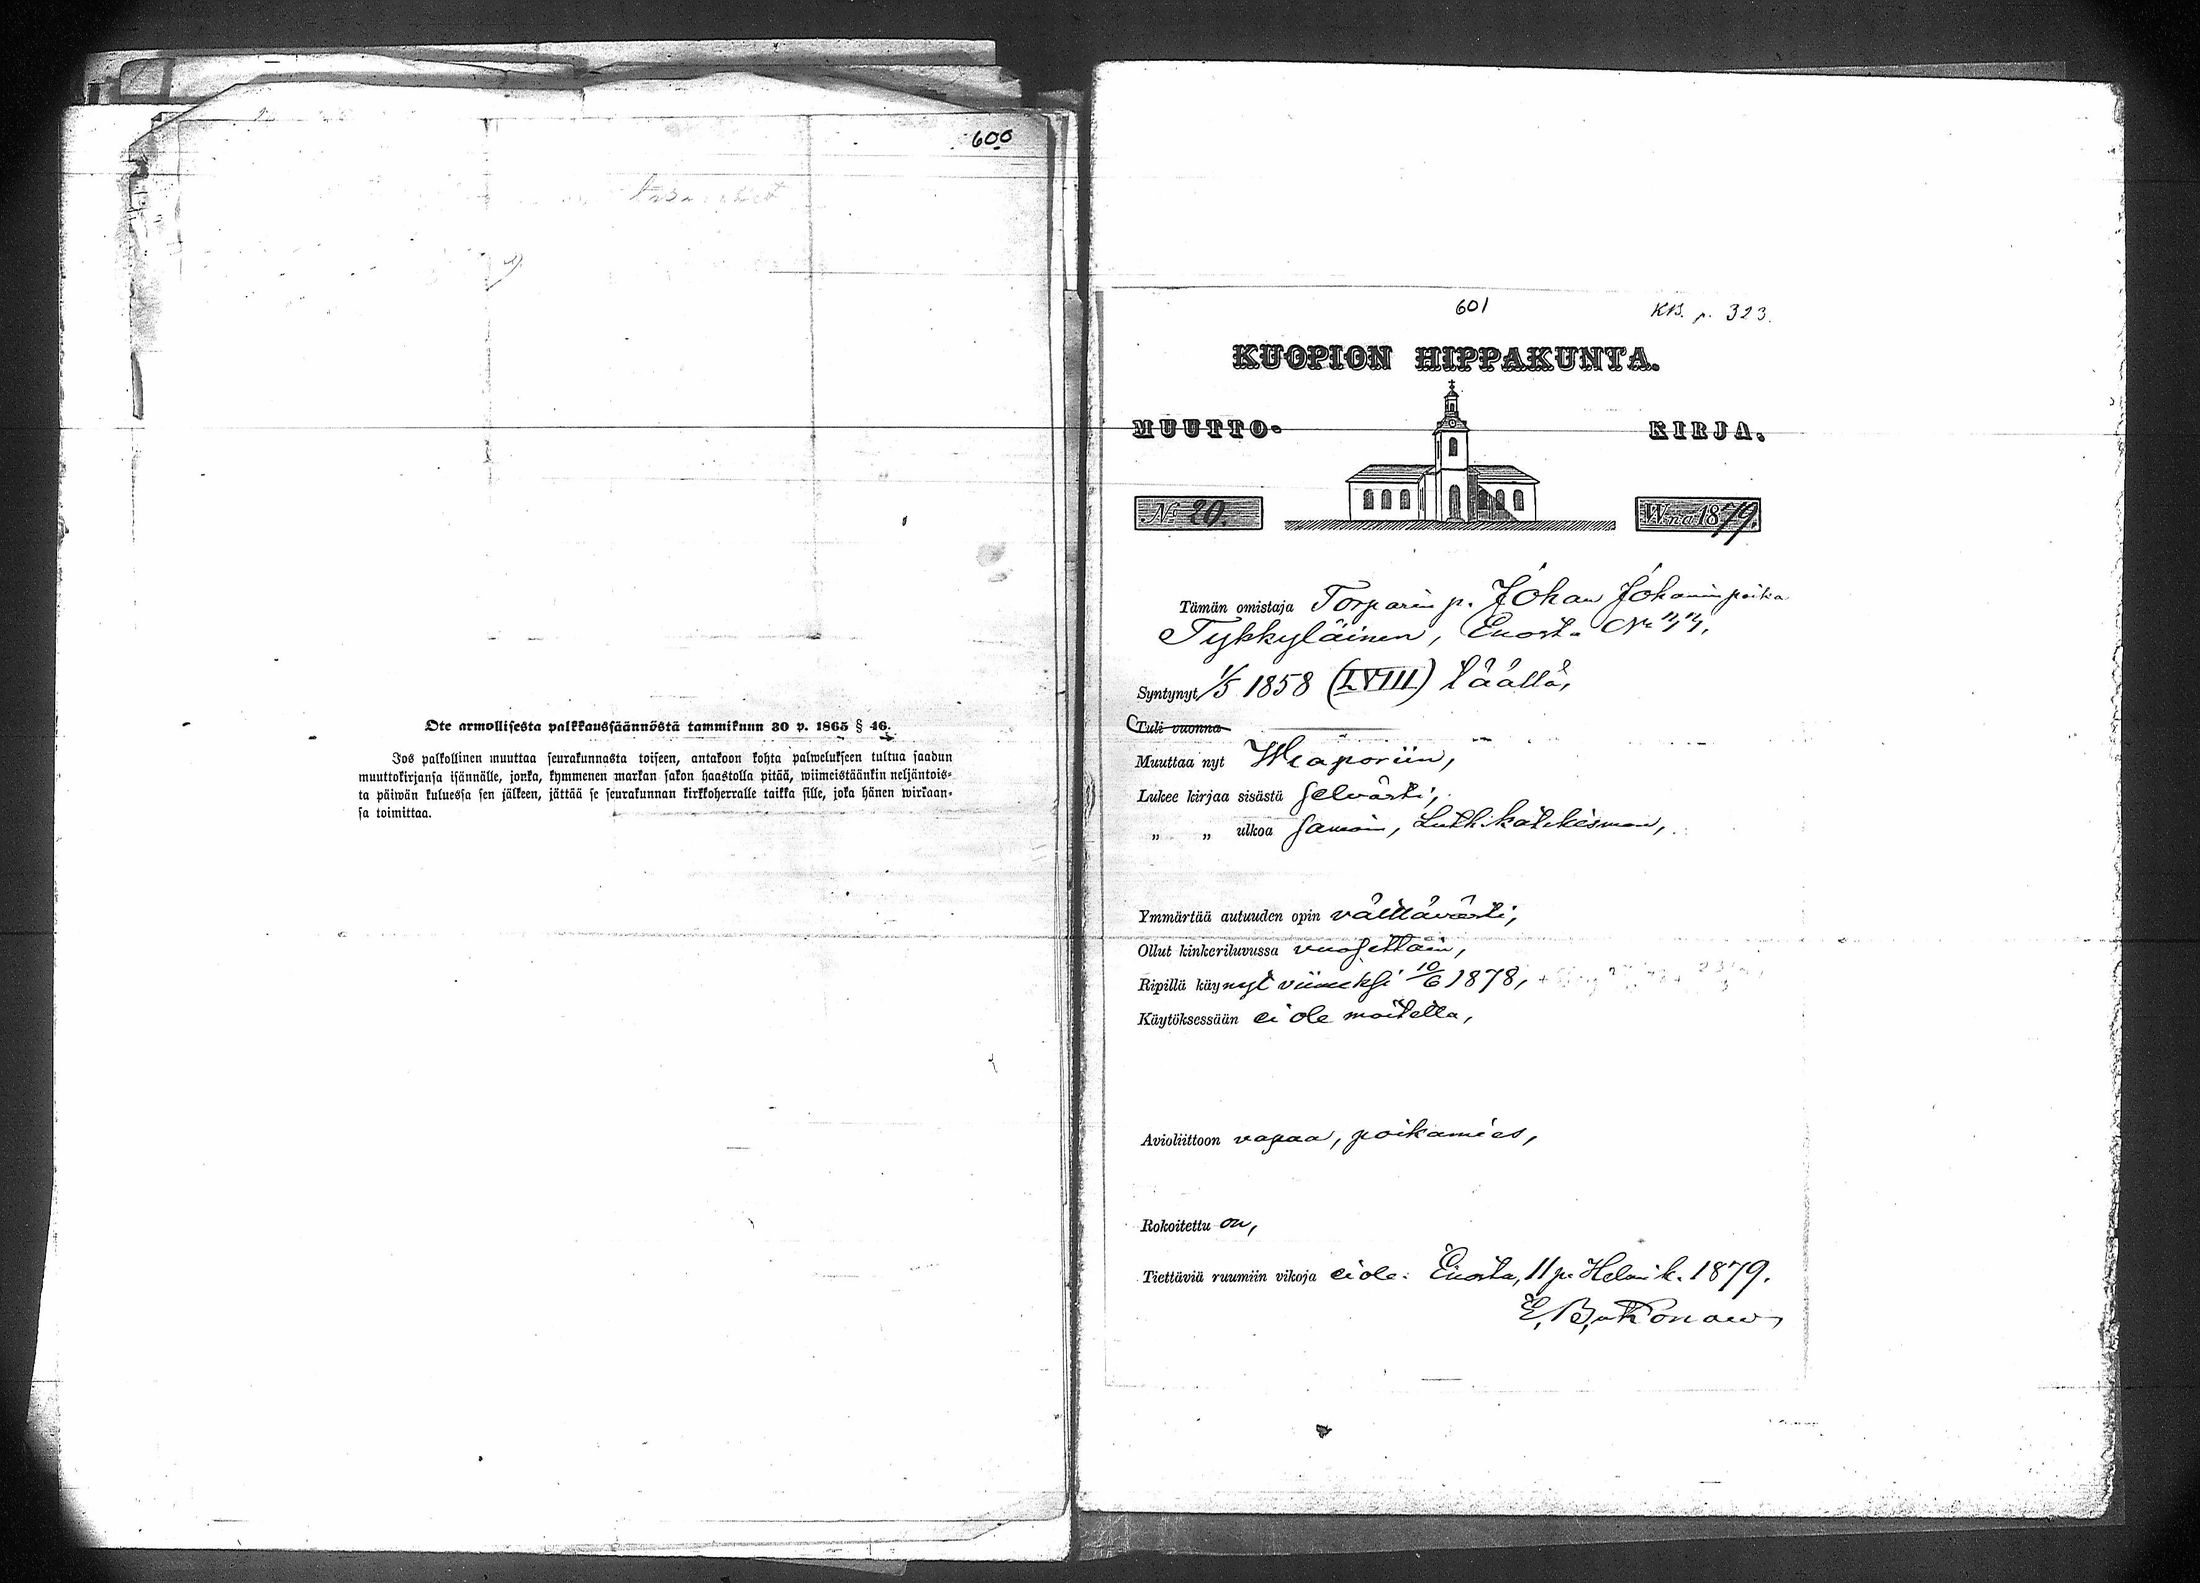 600
Ote armollisesta palkkaussäännöstä tammikuun 30 p. 1865 § 46.
Jos palkollinen muuttaa seurakunnasta toiseen, antakoon kohta palwelukseen tultua saadun
muuttokirjansa isännälle, jonka, kymmenen markan sakon haastolla pitää, wiimeistäänkin neljäntois-
ta päiwän kuluessa sen jälkeen, jättää se seurakunnan kirkkoherralle taikka sille, joka hänen wirkaan-
sa toimittaa.
601
KB. p. 323.
KUOPION HIPPAKUNTA.
MUUTTO- KIRJA.
No 20. Wna 1879.
Tämän omistaja Torparin p. Johan Johaninpoika
Tykkyläinen, Enosta No
Syntynyt 1/5 1858 (LVIII) täällä,
Tuli vuonna
Muuttaa nyt Wiaporiin,
Lukee kirjaa sisästä selvästi,
„ „ ulkoa samoin, Luth. katekismon,
Ymmärtää autuuden opin välttävästi,
Ollut kinkeriluvussa vuosittain,
Ripillä käynyt viimeksi 10/6 1878,
Käytöksessään ei ole moitetta,
Avioliittoon vapaa, poikamies,
Rokoitettu on,
Tiettäviä ruumiin vikoja ei ole. Enosta, 11 p. Helmik. 1879.